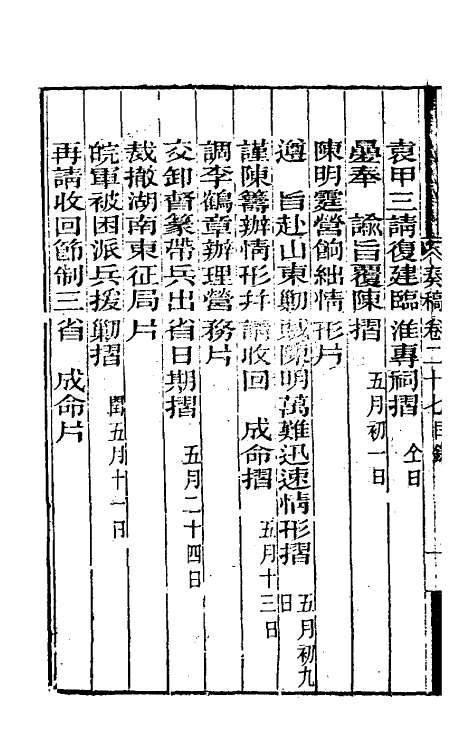 奏稿卷二十七目錄
袁甲三請復建臨淮專祠摺 仝日
疊奉 諭旨覆陳摺 五月初一日
陳明霆營餉絀情形片
遵 旨赴山東剿賊陳明萬難迅速情形摺 五月初九日
謹陳籌辦情形并請收回 成命摺 五月十三日
調李鶴章辦理營務片
交卸督篆帶兵出省日期摺 五月二十四日
裁撤湖南東征局片
皖軍被困派兵援剿摺 閏五月十一日
再請收回節制三省 成命片